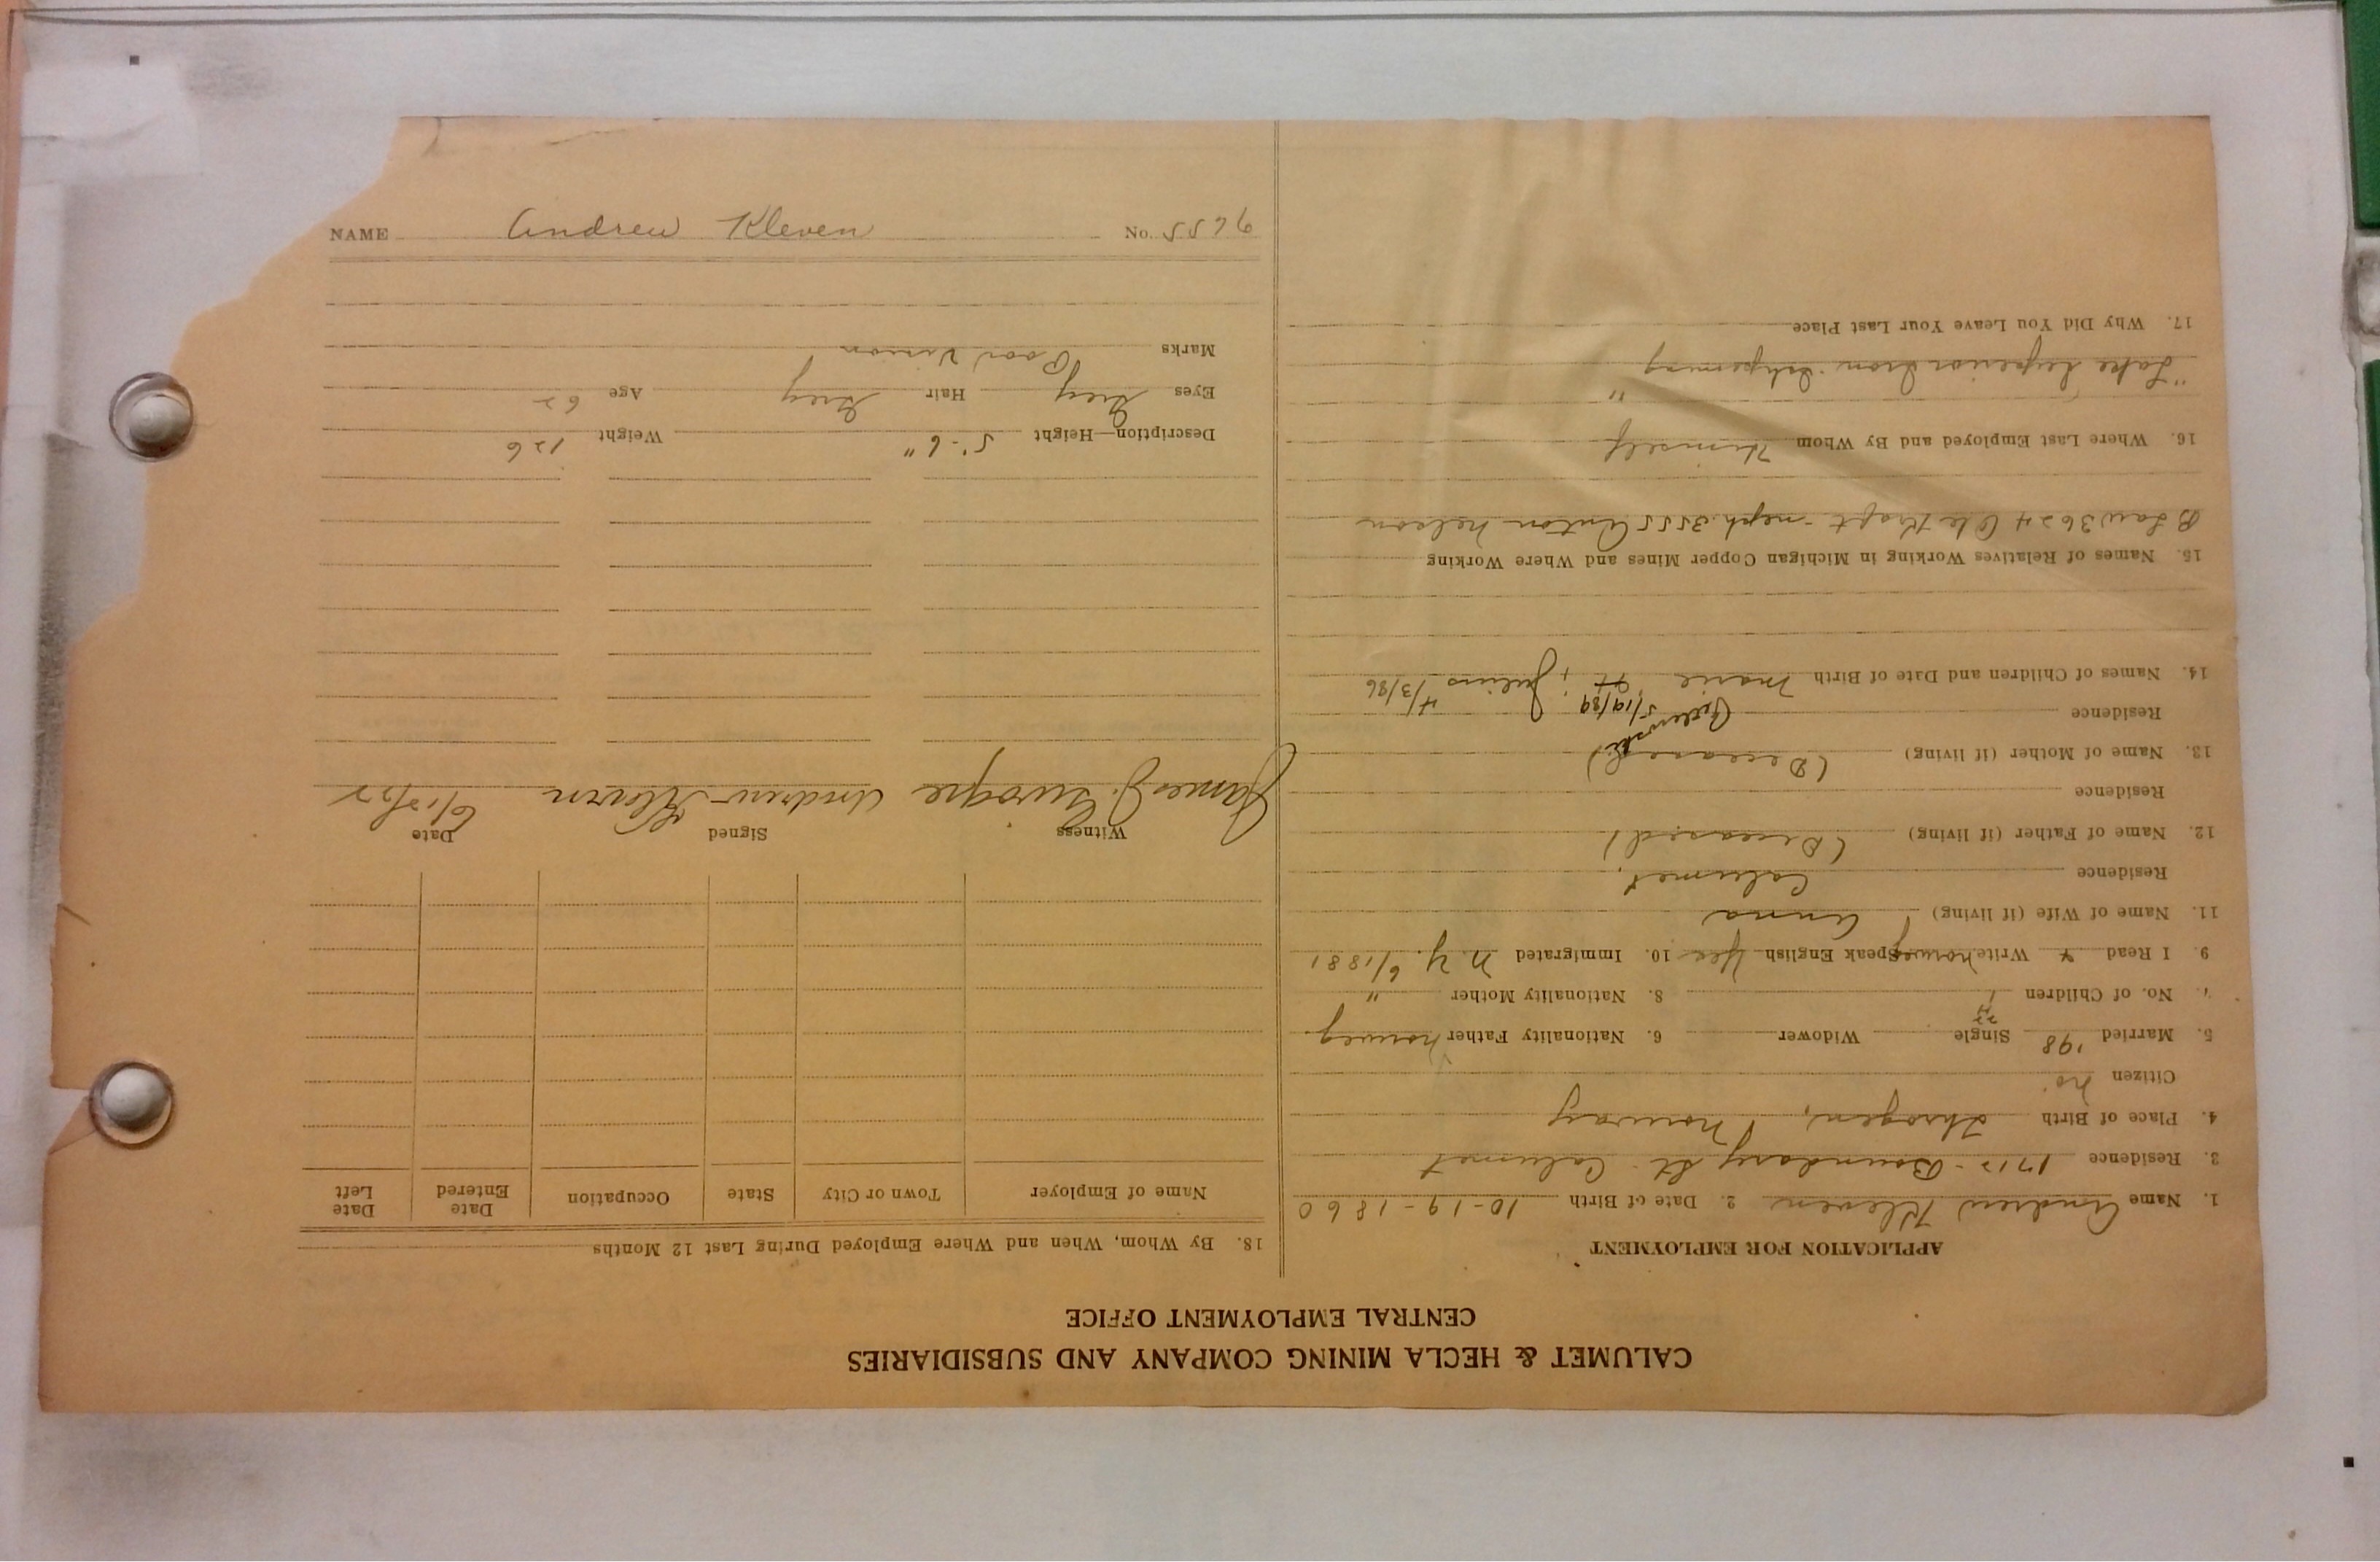 CALUMET & HECLA MINING COMPANY AND SUBSIDIARIES
CENTRAL EMPLOYMENT OFFICE
APPLICATION FOR EMPLOYMENT
1. Name Andrew Kleven 2. Date of Birth 10-19-1860
3. Residence 1712 - Boundary St - Calumet
4. Place of Birth Norway
Citizen no
5. Married '98 Single Widower 6. Nationality Father Norweg.
7. No. of Children 1 8. Nationality Mother "
9. I Read Write Norweg Speak English Yes 10. Immigrated N.Y. 6/1881
11. Name of Wife (if living) Anna
Residence Calumet.
12. Name of Father (if living) (Deceased)
Residence
13. Name of Mother (if living) (Deceased)
Residence
14. Names of Children and Date of Birth Marie 5/19/89; Julius 4/3/86
15. Names of Relatives Working in Michigan Copper Mines and Where Working
B Law 3624 Ole Kraft - neph. 3555 Anton Nelson
16. Where Last Employed and By Whom Himself
"
"Lake Superior Iron. Ishpeming
17. Why Did You Leave Your Last Place
18. By Whom, When and Where Employed During Last 12 Months
Name of Employer Town or City State Occupation Date Entered Date Left
Witness Signed Date
James J. Andrew Kleven 6/12/22
Description—Height 5'-6" Weight 126
Eyes Grey Hair Grey Age 62
Marks Poor Vision
NAME Andrew Kleven No. 5576